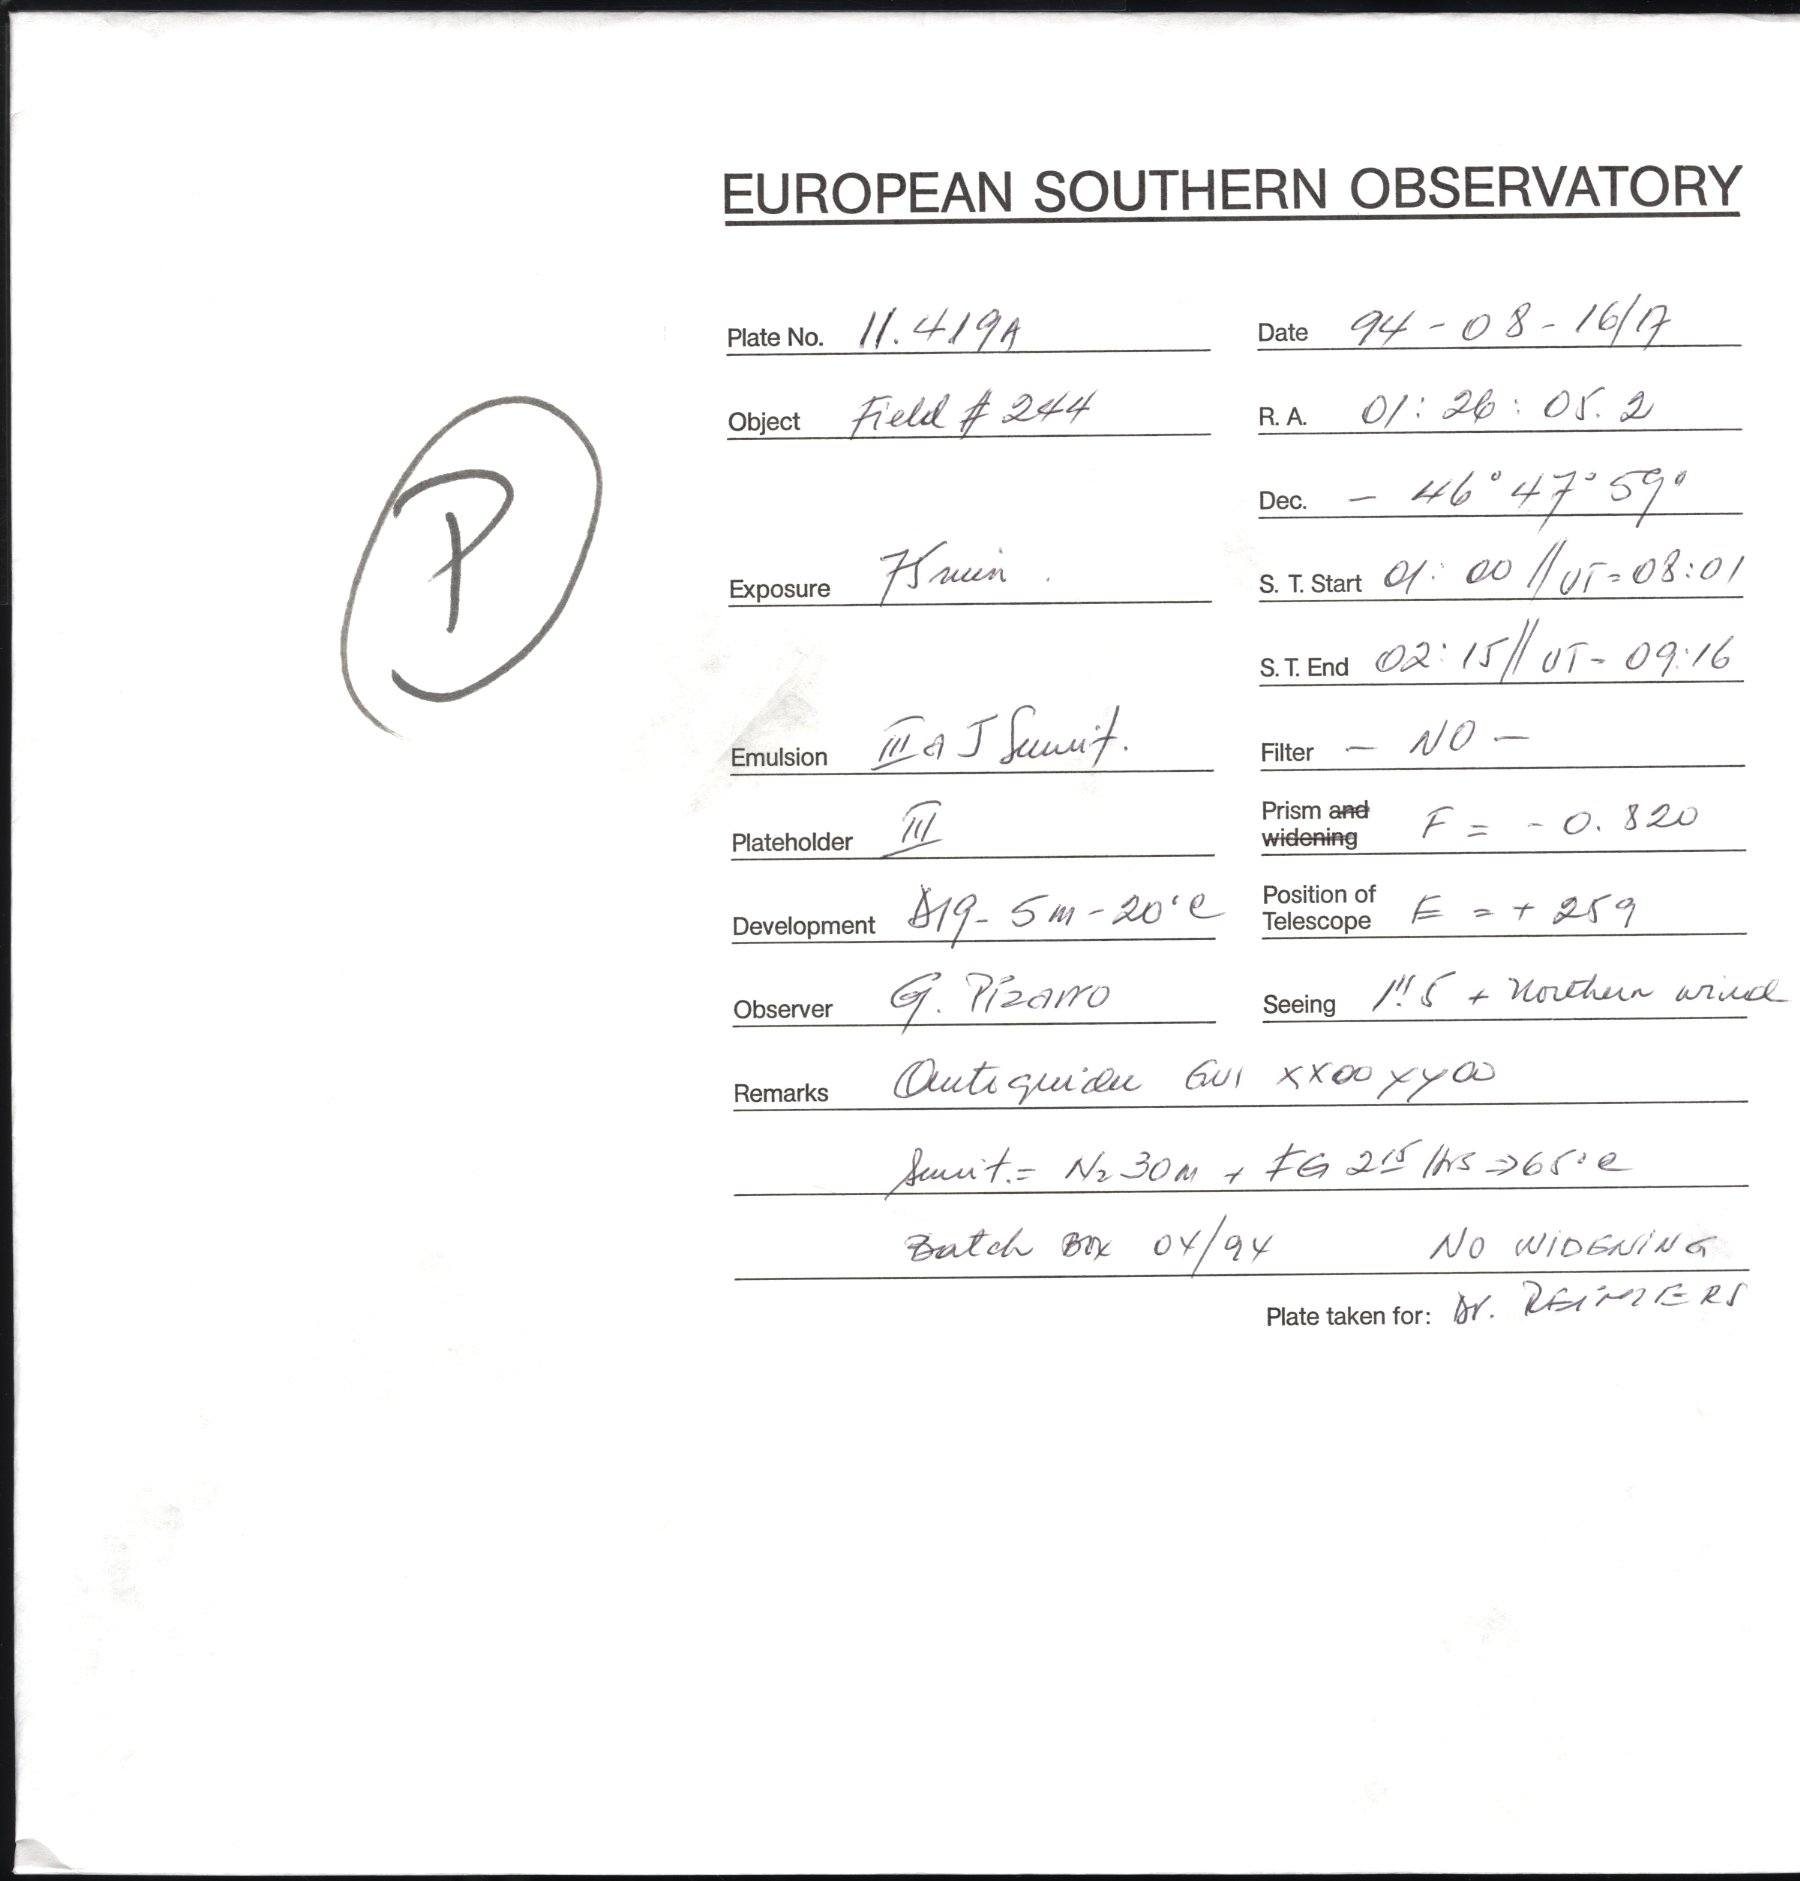 EUROPEAN SOUTHERN OBSERVATORY
Plate No. 11.419A Date 94-08-16/17
Object Field # 244 R. A. 01: 26: 05.2
P
Dec. - 46° 47' 59"
Exposure 75 min. S. T. Start 01: 00 // UT=08:01
S. T. End 02:15// UT- 09:16
Emulsion III a J Sensit. Filter - NO -
Plateholder III Prism and widening F = - 0.820
Development D19- 5m-20°C Position of Telescope E = + 259
Observer G. Pizarro Seeing 1".5 + Northern wind
Remarks Autoguider GUI XX00 YY00
Sensit.= N2 30m + FG 2 15 Hrs → 65°C
Batch Box 04/94 NO WIDENING
Plate taken for: Dr. REIMERS